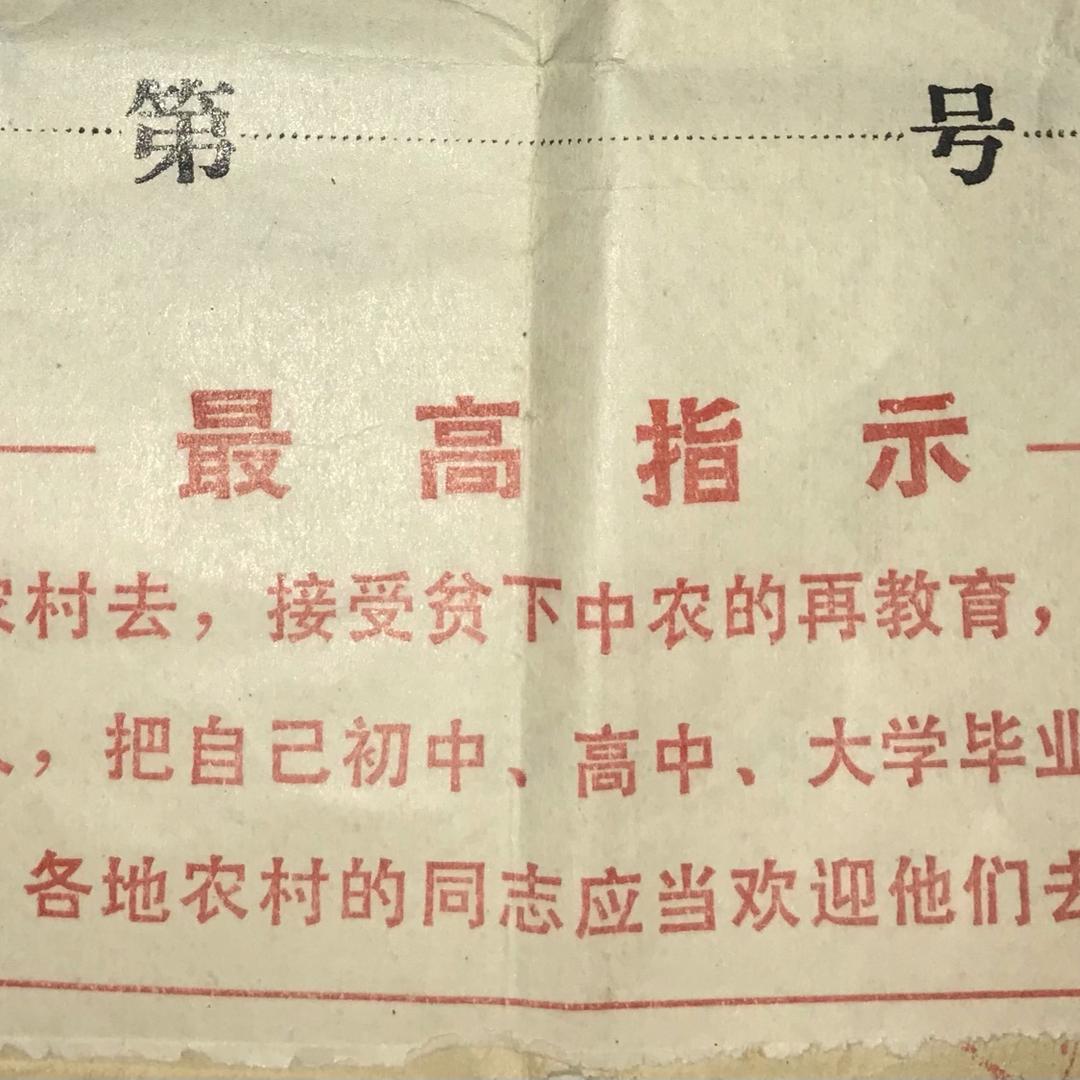 第 号
最高指示
农村去，接受贫下中农的再教育，
，把自己初中、高中、大学毕业
各地农村的同志应当欢迎他们去